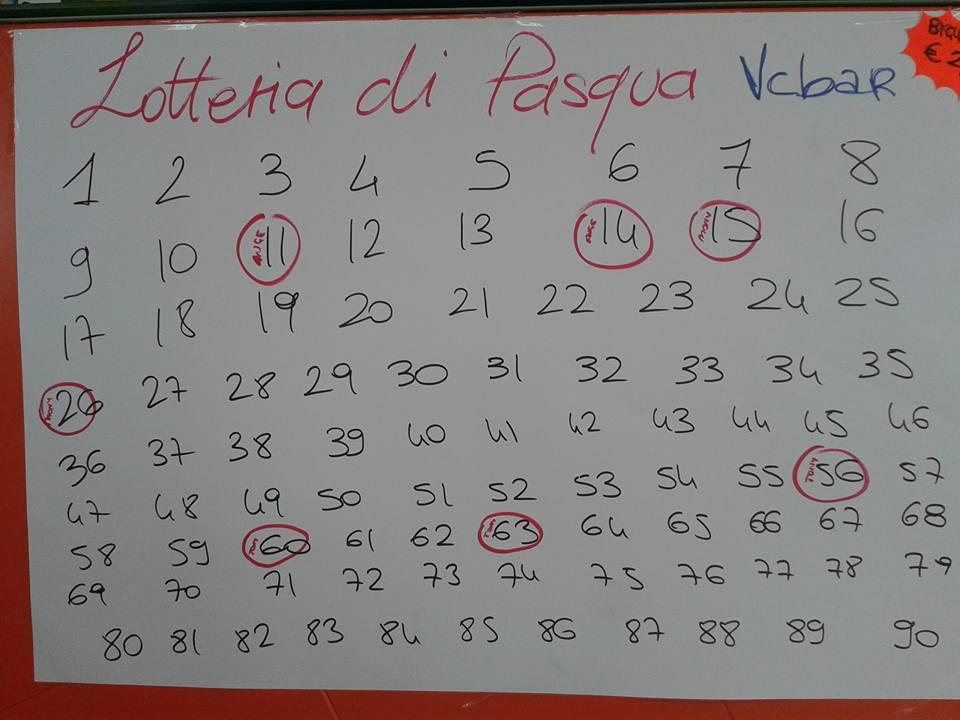 Lotteria di Pasqua Vcbar
€ 2
1 2 3 4 5 6 7 8
9 10 ANGE 11 12 13 14 MONY 15 16
17 18 19 20 21 22 23 24 25
MONY 26 27 28 29 30 31 32 33 34 35
36 37 38 39 40 41 42 43 44 45 46
47 48 49 50 51 52 53 54 55 TONY 56 57
58 59 60 61 62 63 64 65 66 67 68
69 70 71 72 73 74 75 76 77 78 79
80 81 82 83 84 85 86 87 88 89 90